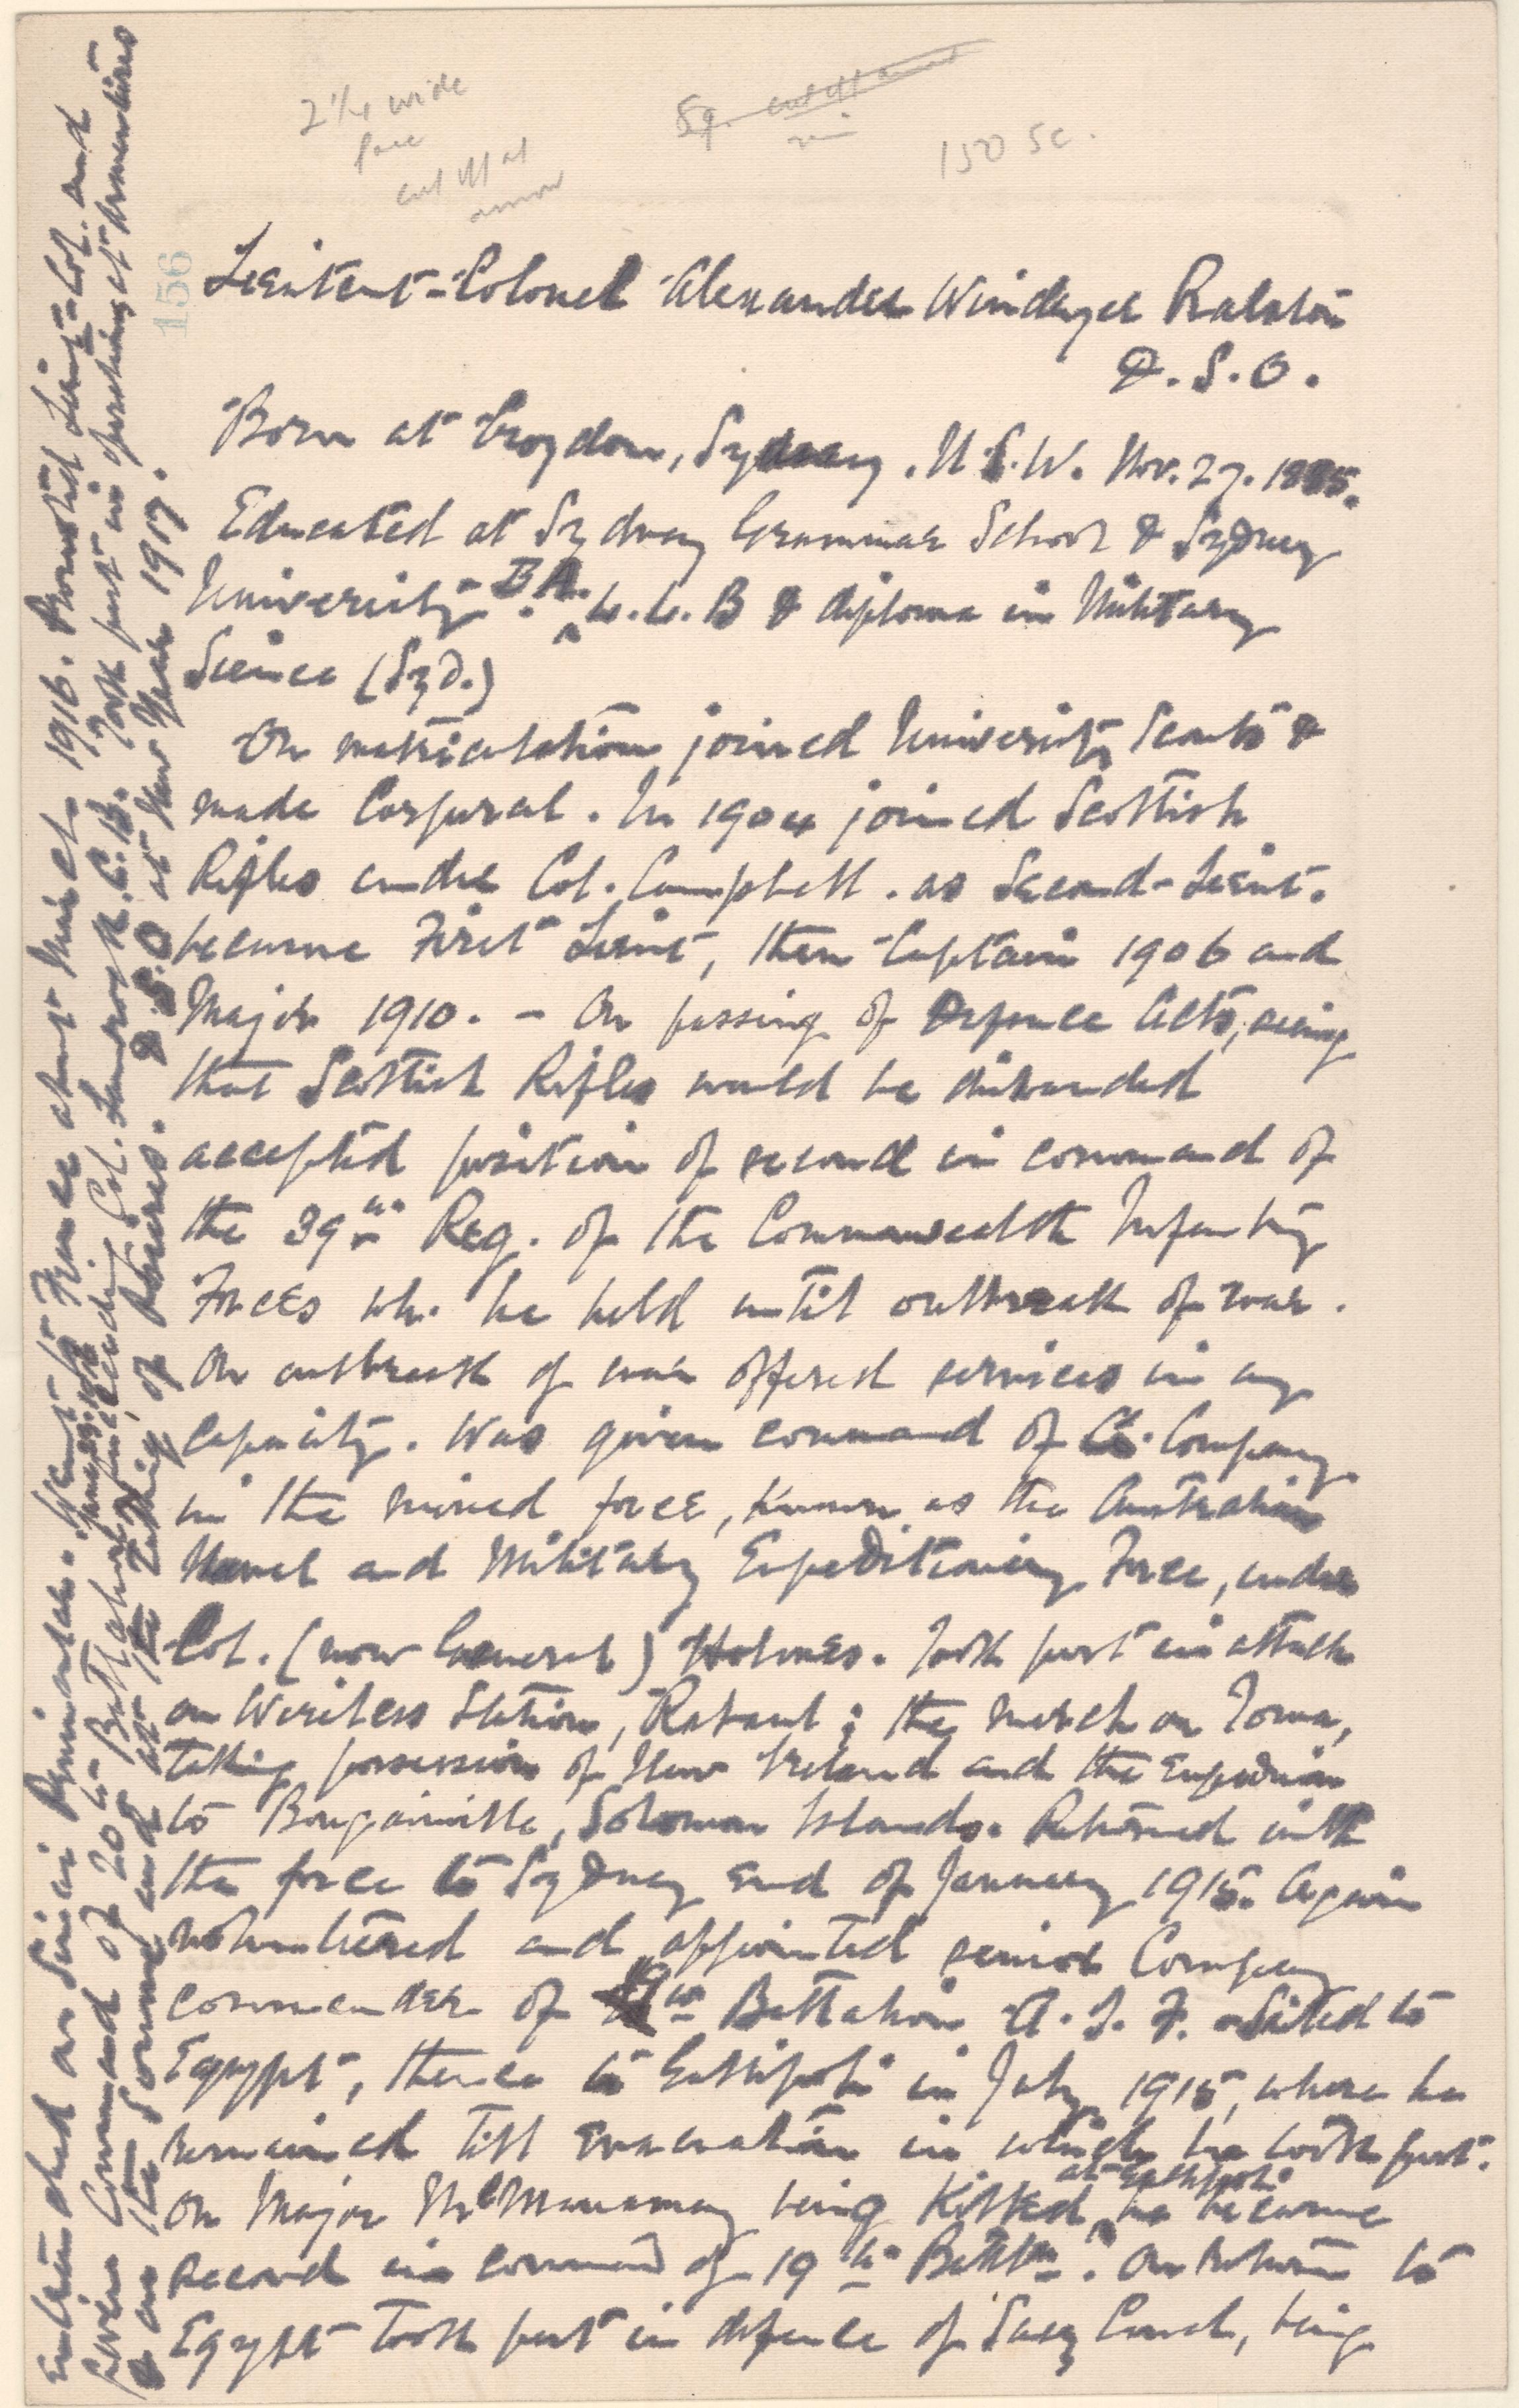 2 1/4 wide
face
cut off at
arrow
Sq.
150 Sc.
156
Lieutent-Colonel Alexander Windeyer Ralston
D.S.O.
Born at Croydon, Sydney. N.S.W. Nov. 27. 1885.
Educated at Sydney Grammar School & Sydney
University. B.A. L.L.B & diploma in Military
Science (Syd.)
On matriculation joined University Scouts &
made Corporal. In 1904 joined Scottish
Rifles under Col. Campbell. as Second-Lieut.
became First Lieut, then Captain 1906 and
Major 1910. - On passing of Defence Acts, seeing
that Scottish Rifles would be disbanded
accepted position of second in command of
the 39th Reg. of the Commonwealth Infantry
Forces wh. he held until outbreak of war.
On outbreak of war offered services in any
capacity. Was given command of Company
in the mixed force, known as the Australian
Naval and Military Expeditionary Force, under
Col. (now General) Holmes. Took part in attack
on Wireless Station, Rabaul; the march on Toma,
taking possession of New Ireland and the Expedition
to Bougainville, Solomon Islands. Returned with
the force to Sydney end of January 1915. Again
volunteered and appointed senior Company
commander of 19th Battalion A.I.F. Sailed to
Egypt, thence to Gallipoli in July 1915, where he
remained till evacuation in which he took part.
On Major McManamey being killed at Gallipoli he became
second in command of 19th Battn. On return to
Egypt took part in defence of Suez Canal, being
entrenched on Sinai Peninsular. Went to France about March 1916. Promoted Lieut-Col. and
given Command of 20th Battalion June 29. 1916 succeeding Col. Lamrock C.B. Took part in operations at Armentieres
& on the Somme and at the taking of Pozieres. D.S.O at New Year 1917.